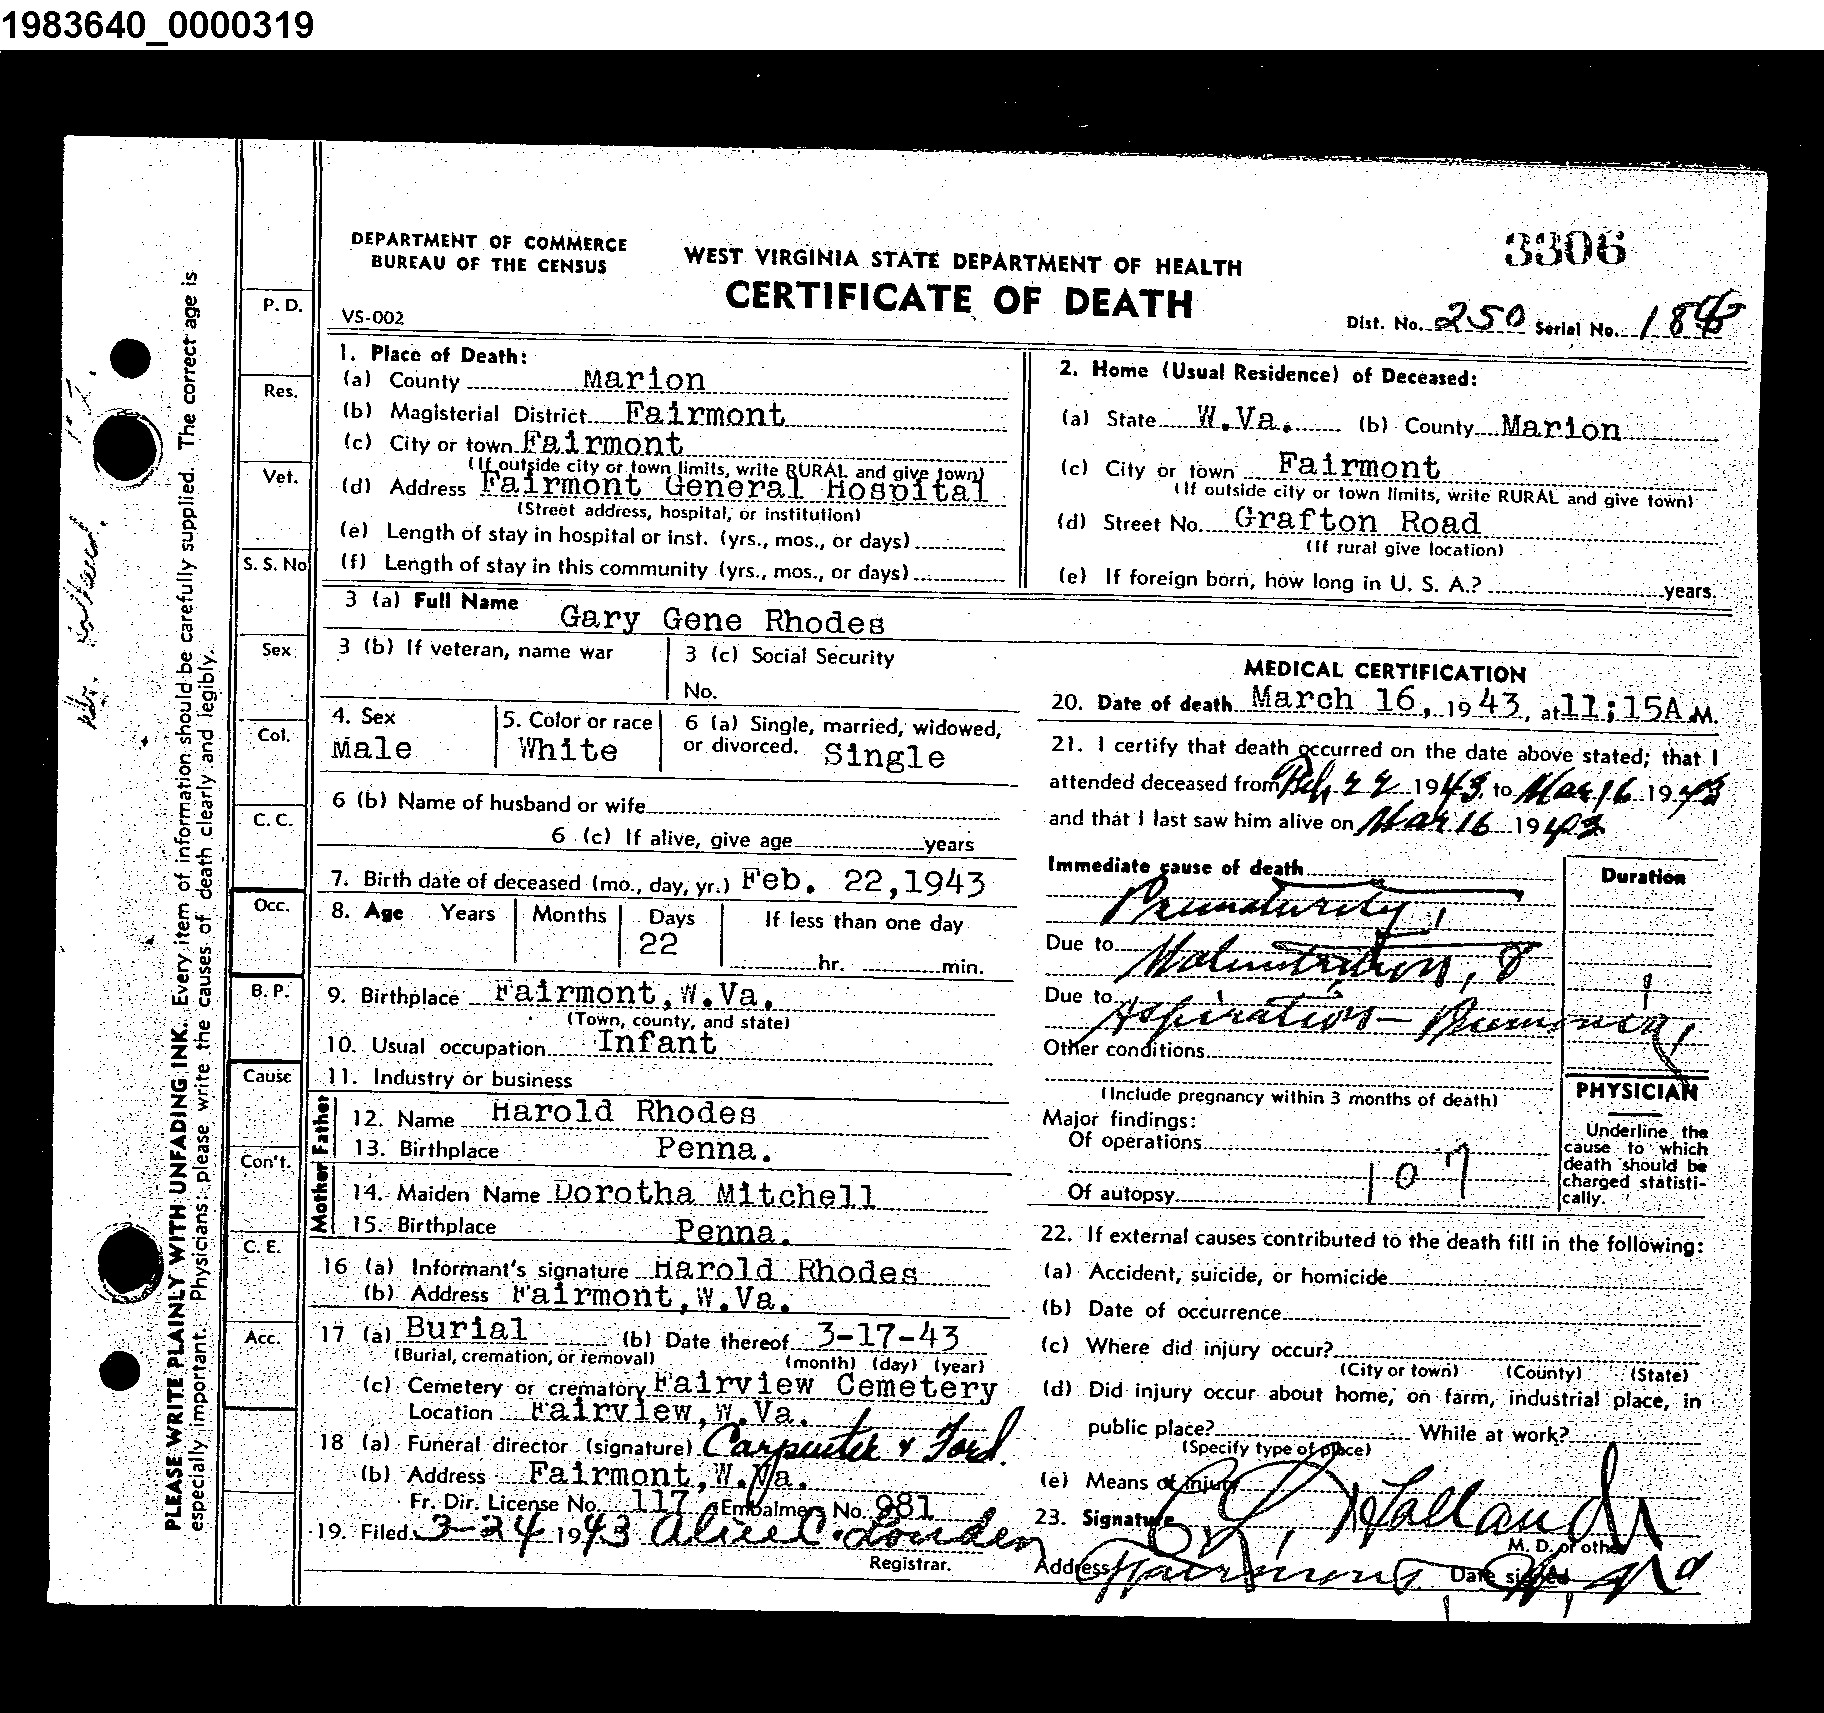 1983640_0000319
DEPARTMENT OF COMMERCE
BUREAU OF THE CENSUS
WEST VIRGINIA STATE DEPARTMENT OF HEALTH
CERTIFICATE OF DEATH
3306
VS-002
Dist. No. 250 Serial No.
1. Place of Death:
(a) County Marion
(b) Magisterial District Fairmont
(c) City or town Fairmont
(If outside city or town limits, write RURAL and give town)
(d) Address Fairmont General Hospital
(Street address, hospital, or institution)
(e) Length of stay in hospital or inst. (yrs., mos., or days)
(f) Length of stay in this community (yrs., mos., or days)
2. Home (Usual Residence) of Deceased:
(a) State W.Va. (b) County Marion
(c) City or town Fairmont
(If outside city or town limits, write RURAL and give town)
(d) Street No. Grafton Road
(If rural give location)
(e) If foreign born, how long in U. S. A.? years.
3 (a) Full Name Gary Gene Rhodes
3 (b) If veteran, name war
3 (c) Social Security
No.
4. Sex
Male
5. Color or race
White
6 (a) Single, married, widowed,
or divorced. Single
6 (b) Name of husband or wife
6 (c) If alive, give age years
7. Birth date of deceased (mo., day, yr.) Feb. 22,1943
8. Age Years Months Days If less than one day
22
hr. min.
9. Birthplace Fairmont,W.Va.
(Town, county, and state)
10. Usual occupation Infant
11. Industry or business
Father
12. Name Harold Rhodes
13. Birthplace Penna.
Mother
14. Maiden Name Dorotha Mitchell
15. Birthplace Penna.
16 (a) Informant's signature Harold Rhodes
(b) Address Fairmont,W.Va.
17 (a) Burial (b) Date thereof 3-17-43
(Burial, cremation, or removal) (month) (day) (year)
(c) Cemetery or crematory Fairview Cemetery
Location Fairview,W.Va.
18 (a) Funeral director (signature) Carpenter & Ford.
(b) Address Fairmont,W.Va.
Fr. Dir. License No. 117 Embalmers No. 981
19. Filed 3-24 1943 Alice C. Louden
Registrar.
MEDICAL CERTIFICATION
20. Date of death March 16, 1943, at 11;15A M.
21. I certify that death occurred on the date above stated; that I
attended deceased from Feb, 22 1943, to Mar 16 1943
and that I last saw him alive on Mar 16 1943
Immediate cause of death
Duration
Prematurity,
Due to
Malnutrition, &
Due to
Aspiration - Pneumonia
Other conditions
(Include pregnancy within 3 months of death)
Major findings:
Of operations
107
Of autopsy
PHYSICIAN
Underline the
cause to which
death should be
charged statisti-
cally.
22. If external causes contributed to the death fill in the following:
(a) Accident, suicide, or homicide
(b) Date of occurrence
(c) Where did injury occur?
(City or town) (County) (State)
(d) Did injury occur about home, on farm, industrial place, in
public place? While at work?
(Specify type of place)
(e) Means of injury
23. Signature Holland
M. D. or other
Address Fairmont Date signed
P. D.
Res.
Vet.
S. S. No
Sex
Col.
C. C.
Occ.
B. P.
Cause
Con't.
C. E.
Acc.
PLEASE WRITE PLAINLY WITH UNFADING INK. Every item of information should be carefully supplied. The correct age is
especially important. Physicians: please write the causes of death clearly and legibly.